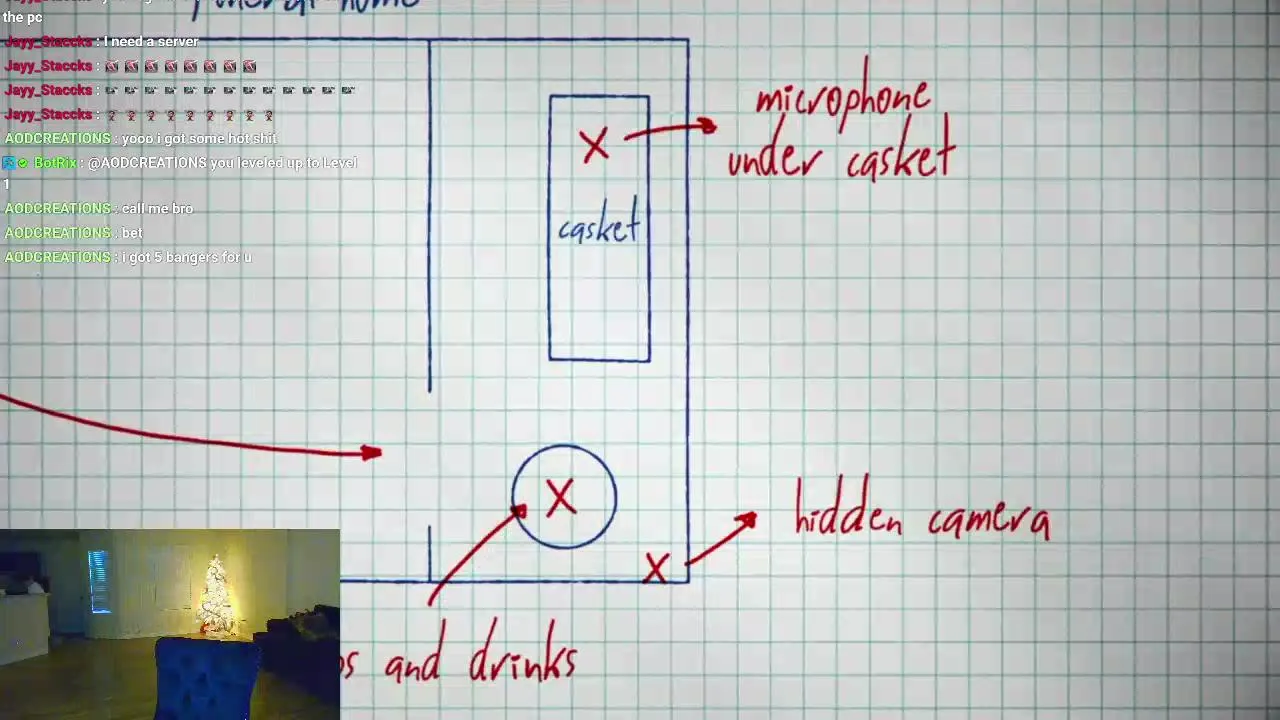 the pc
Jayy_Staccks : I need a server
Jayy_Staccks :
Jayy_Staccks :
Jayy_Staccks :
AODCREATIONS : yooo i got some hot shit
BotRix : @AODCREATIONS you leveled up to Level
1
AODCREATIONS : call me bro
AODCREATIONS : bet
AODCREATIONS : i got 5 bangers for u
home
microphone
under casket
casket
hidden camera
and drinks